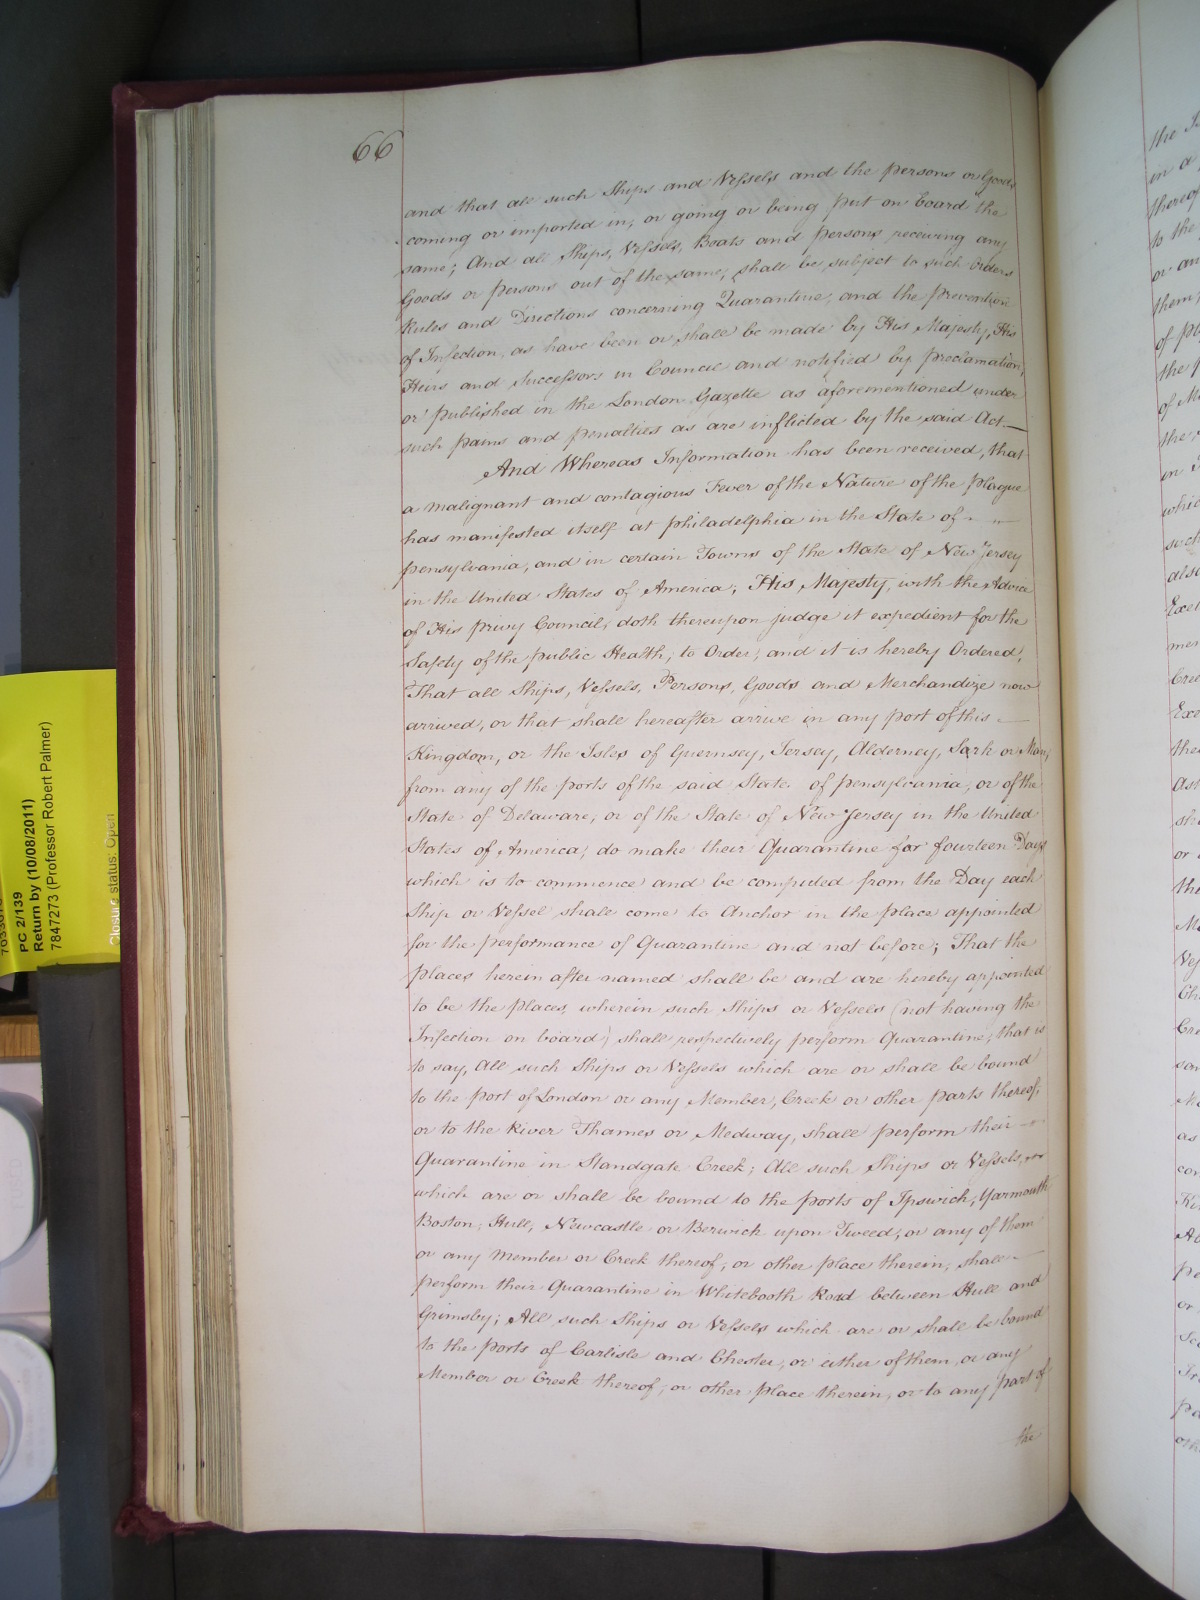 66
and that all such Ships and Vessels and the persons or Goods
coming or imported in, or going or being put on board the
same; And all Ships, Vessels, Boats and persons receiving any
Goods or persons out of the same; shall be subject to such Orders
Rules and Directions concerning Quarantine, and the prevention
of Infection, as have been or shall be made by His Majesty, His
Heirs and Successors in Council and notified by proclamation,
or published in the London Gazette as aforementioned under
such pains and penalties as are inflicted by the said Act.—
And Whereas Information has been received, that
a malignant and contagious Fever of the Nature of the plague
has manifested itself at philadelphia in the State of
pensylvania, and in certain Towns of the State of New Jersey
in the United States of America; His Majesty, with the Advice
of His privy Council, doth thereupon judge it expedient for the
Safety of the public Health, to Order, and it is hereby Ordered,
That all Ships, Vessels, Persons, Goods and Merchandize now
arrived, or that shall hereafter arrive in any port of this —
Kingdom, or the Isles of Guernsey, Jersey, Alderney, Sark or Man,
from any of the ports of the said State of pensylvania, or of the
State of Delaware, or of the State of New Jersey in the United
States of America, do make their Quarantine for fourteen Days
which is to commence and be computed from the Day each
Ship or Vessel shall come to Anchor in the place appointed
for the performance of Quarantine and not before; That the
places herein after named shall be and are hereby appointed
to be the places, wherein such Ships or Vessels (not having the
Infection on board) shall respectively perform Quarantine, that is
to say, All such Ships or Vessels which are or shall be bound
to the port of London or any Member, Creek or other parts thereof,
or to the River Thames or Medway, shall perform their
Quarantine in Standgate Creek; All such Ships or Vessels,
which are or shall be bound to the ports of Ipswich, Yarmouth
Boston, Hull, Newcastle or Berwick upon Tweed, or any of them
or any Member or Creek thereof, or other place therein, shall —
perform their Quarantine in Whitebooth Road between Hull and
Grimsby; All such Ships or Vessels which are or shall be bound
to the ports of Carlisle and Chester, or either of them, or any
Member or Creek thereof, or other place therein, or to any part of
the
PC 2/139
Return by (10/08/2011)
7847273 (Professor Robert Palmer)
Closure status: Open
the
in a
thereof
to the
or an
them
of
the
of
the
in
which
such
also